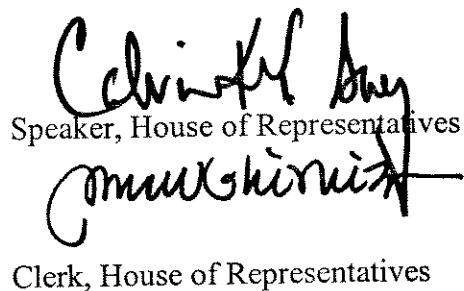 Calvin K Y Say
Speaker, House of Representatives
Clerk, House of Representatives